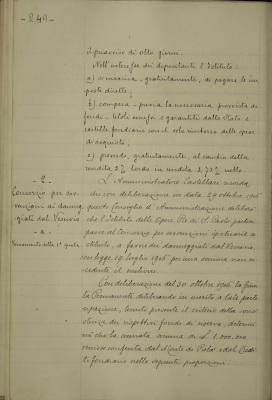 - 249 -
il preavviso di otto giorni.
Nell'interesse dei depositanti l'Istituto:
a) s'incarica, gratuitamente, di pagare le im-
poste dirette;
b) compera - previa la necessaria provvista di
fondi - titoli emessi o garantiti dallo Stato e
cartelle fondiarie con il solo rimborso delle spese
di acquisto;
c) provvede, gratuitamente, al cambio della
rendita 5% lordo in rendita 3,75% netto.
- 2 -
Consorzio per sov-
venzioni ai danneg-
giati dal Vesuvio
- a -
Versamento della 1ª quota
L'Amministratore Castellani ricorda
che con deliberazione in data 29 ottobre 1906
questo Consiglio d'Amministrazione deliberò
che l'Istituto delle Opere Pie di S. Paolo parteci-
passe al Consorzio per sovvenzioni ipotecarie
istituito, a favore dei danneggiati dal Vesuvio,
con legge 19 luglio 1906 per una somma non ec-
cedente il milione.
Con deliberazione del 30 ottobre 1906 la Giun-
ta Permanente deliberando in merito a tale parte-
cipazione, tenuto presente il criterio della consi-
stenza dei rispettivi fondi di riserva, determi-
nò che la somma di L. 1.000.000
venisse conferita dal Monte di Pietà e dal Credi-
to fondiario nelle seguenti proporzioni: